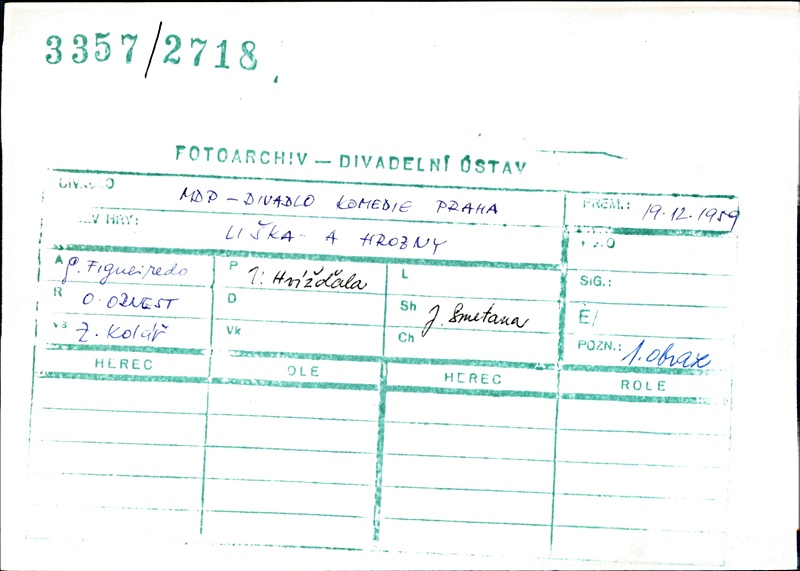 3357/2718
FOTOARCHIV — DIVADELNÍ ÚSTAV
MDP – DIVADLO KOMEDIE PRAHA
PREM.: 19.12.1959
HRY:
LIŠKA A HROZNY
A G. Figueiredo
P I. Hvížďala
L
SIG.:
R O. ORNEST
D
Sh J. Smetana
Č/
VS Z. Kolář
Vk
Ch
POZN.: 1. obraz
HEREC
OLE
HEREC
ROLE